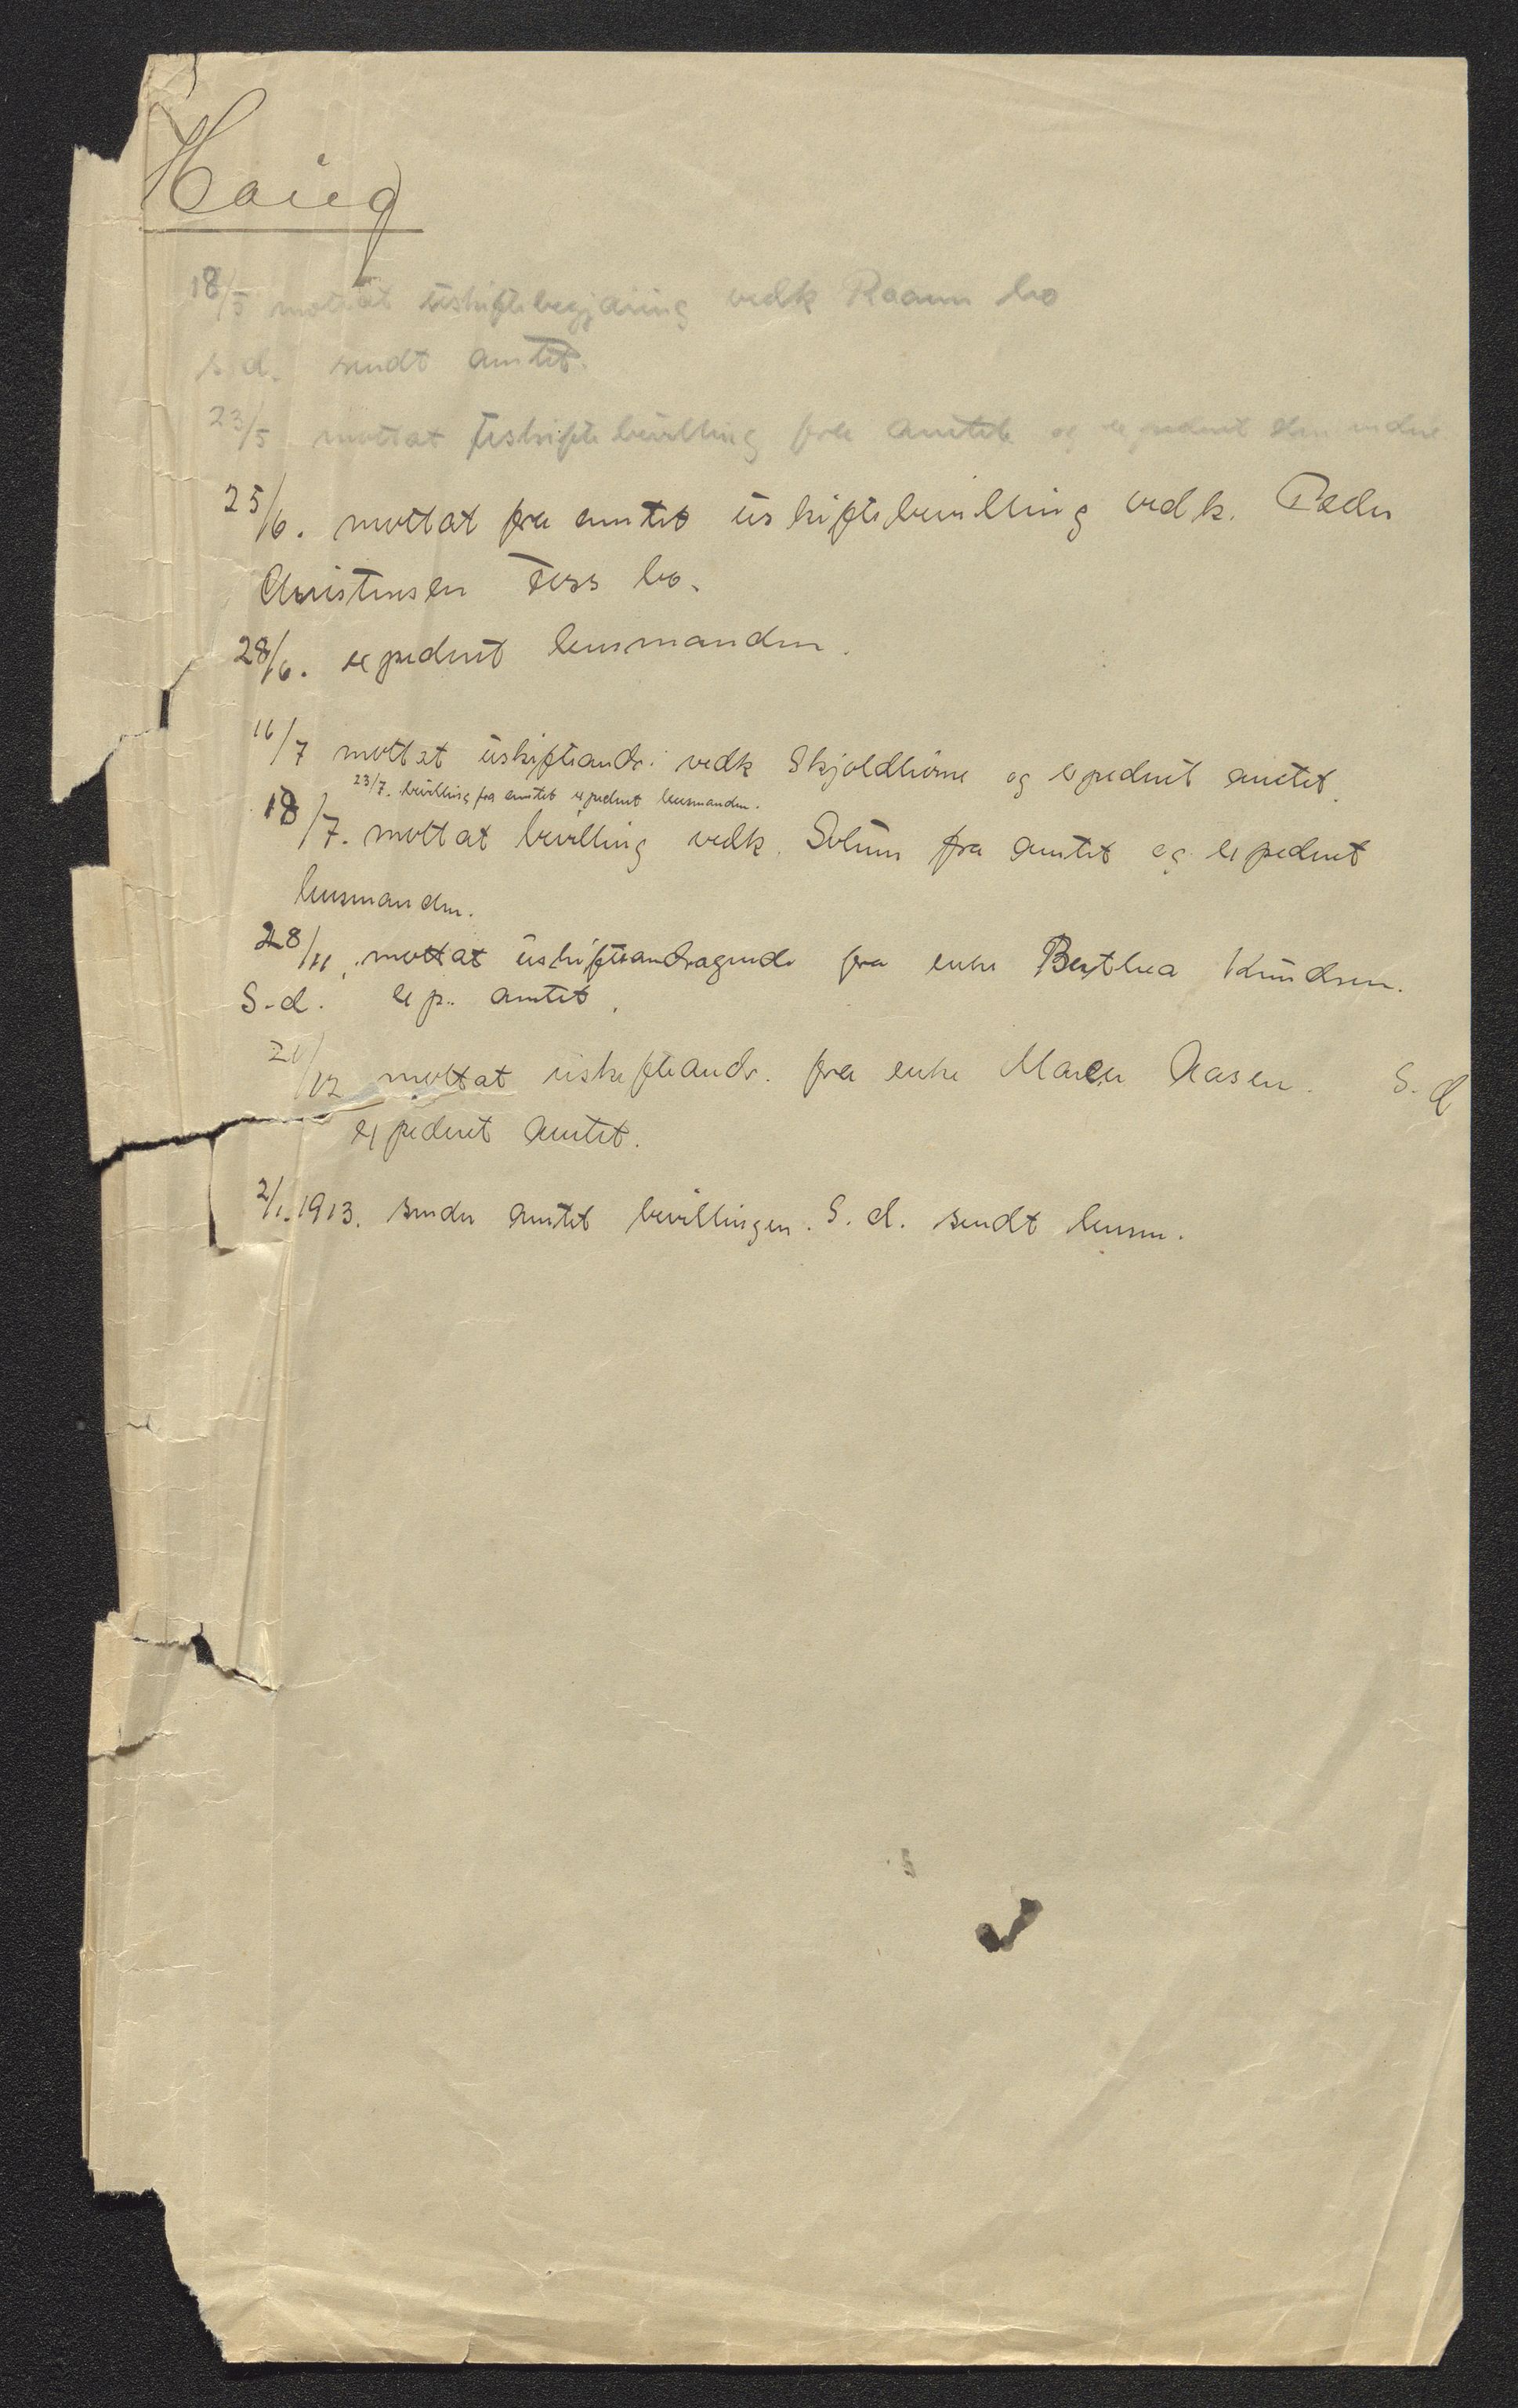 Haug
18/5 mottat uskiftebegjæring vedk Raaum bo
s.d. sendt amtet.
23/5 mottat uskiftebevilling fra amtet og expedert
25/6. mottat fra amtet uskiftebevilling vedk. Peder
Christensen Foss bo.
28/6. expedert lensmanden.
16/7 mottat uskifteandr. vedk Skjoldhörne og expedert amtet.
23/7. bevilling fra amtet expedert lensmanden.
18/7. mottat bevilling vedk. Solum fra amtet og expedert
lensmanden.
28/11. mottat uskifteandragende fra enke Berthea Knudsen.
S.d. exp. amtet.
21/12 mottat uskifteandr. fra enke Maren Aasen. S.d
expedert amtet.
2/1. 1913. sender amtet bevillingen. S.d. sendt lensm.